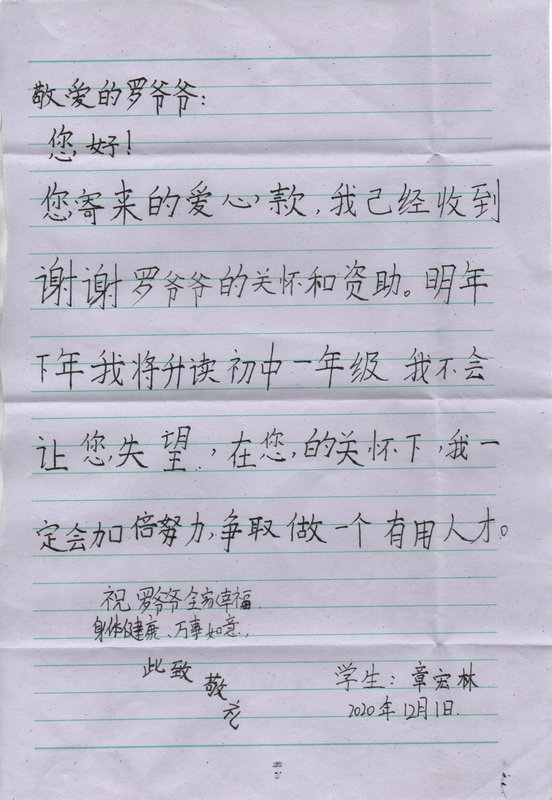 敬爱的罗爷爷：
您好！
您寄来的爱心款，我己经收到
谢谢罗爷爷的关怀和资助。明年
下年我将升读初中一年级 我不会
让您失望，在您的关怀下，我一
定会加倍努力，争取做一个有用人才。
祝罗爷爷全家幸福
身体健康、万事如意，
此致敬礼
学生：章宏林
2020年12月1日